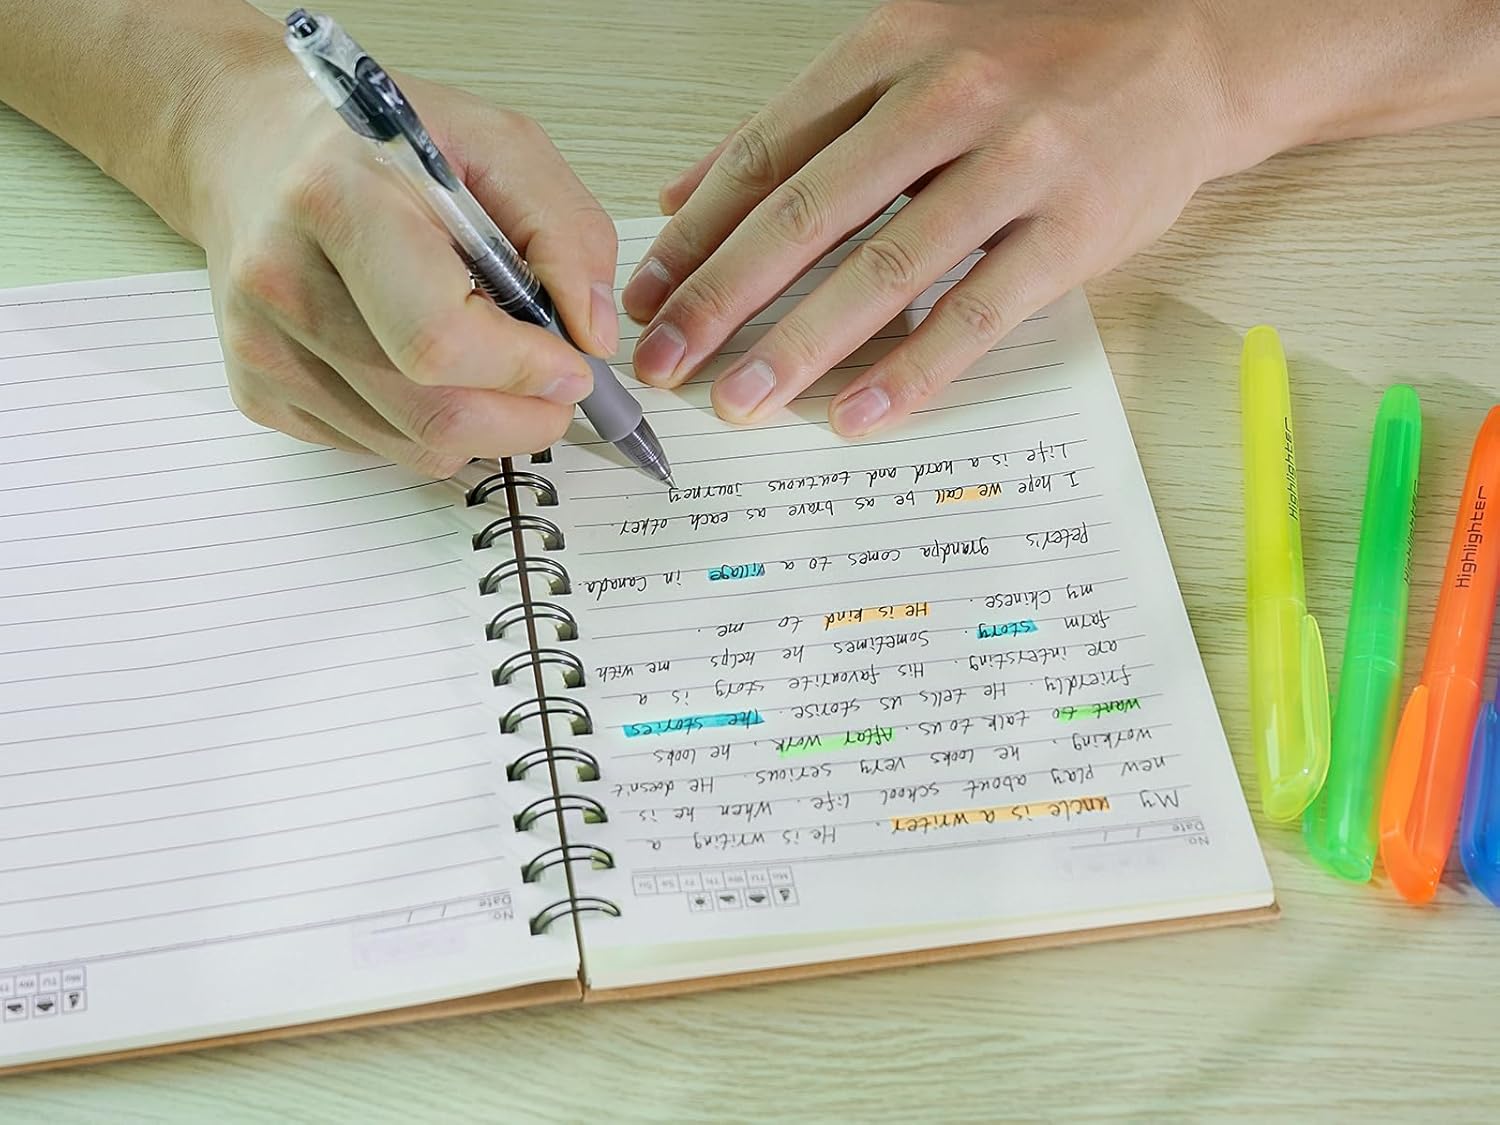 No.
Date / /
Mo TU We Th
Mo TU We Th Fr Sa Su
No.
Date / /
My uncle is a writer. He is writing a
new play about school life. When he is
working. he looks very serious. He doesn't
want to talk to us. After work. he looks
friendly. He tells us storise. The stories
are intersting. His favourite story is a
farm story. Sometimes he helps me with
my Chinese. He is kind to me.
Peter's grandpa comes to a village in Canada.
I hope we call be as brave as each other.
Life is a hard and toutuous journey.
Highlighter
Highlighter